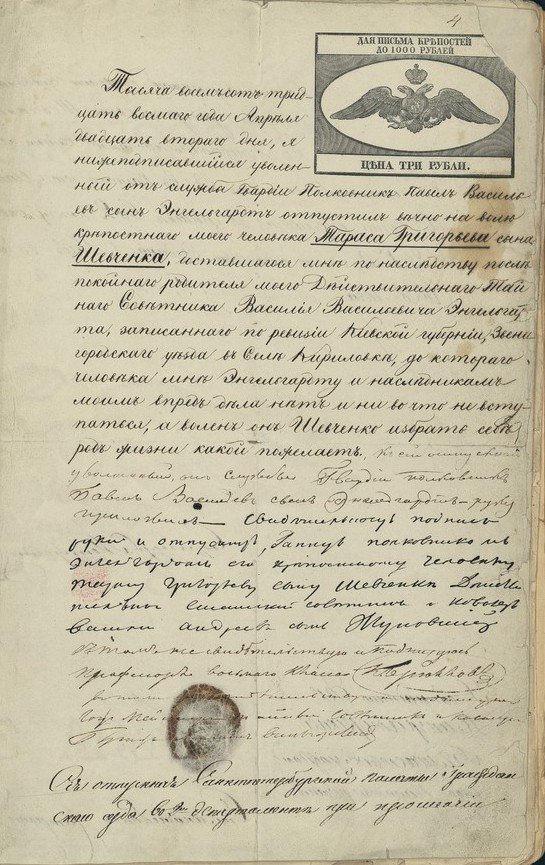 4
ДЛЯ ПИСЬМА КРѢПОСТЕЙ
ДО 1000 РУБЛЕЙ
ЦѢНА ТРИ РУБЛИ.
Тысяча восемьсотъ трид-
цать восьмаго года Апрѣля
двадцать втораго дня, я
нижеподписавшійся уволен-
ной отъ службы Гвардіи Полковникъ Павелъ Василь
евъ сынъ Энгельгардтъ отпустилъ вѣчно на волю
крѣпостнаго моего человѣка Тараса Григорьева сына
Шевченка, доставшагося мнѣ по наслѣдству послѣ
покойнаго родителя моего Дѣйствительнаго Тай
наго Совѣтника Василія Васильевича Энгельгард
та, записаннаго по ревизіи Кіевской губерніи, Звени
городскаго уѣзда въ Селѣ Кириловкѣ, до котораго
человѣка мнѣ Энгельгардту и наслѣдникамъ
моимъ впредь дѣла нѣтъ и ни во что не всту
паться, а воленъ онъ Шевченко избрать себѣ
родъ жизни какой пожелаетъ. Къ сей отпускной
уволенный отъ службы Гвардіи полковникъ
Павелъ Васильевъ сынъ Энгельгардтъ руку
приложилъ — Свидѣтельствую подпись
руки и отпускную, полковникомъ
Энгельгардтомъ его крѣпостному человѣку
Тарасу Григорьеву сыну Шевченкѣ Дѣйстви
тельный статскій совѣтникъ и кавалеръ
Василій Андреевъ сынъ Жуковскій
Въ томъ же свидѣтельствую и подписуюсь
Профессоръ осьмаго класса К. Брюлловъ
въ томъ
Графъ
Съ отпускныхъ Санктпетербургской палаты Граждан
скаго суда во 2м департаментѣ при прошеніи